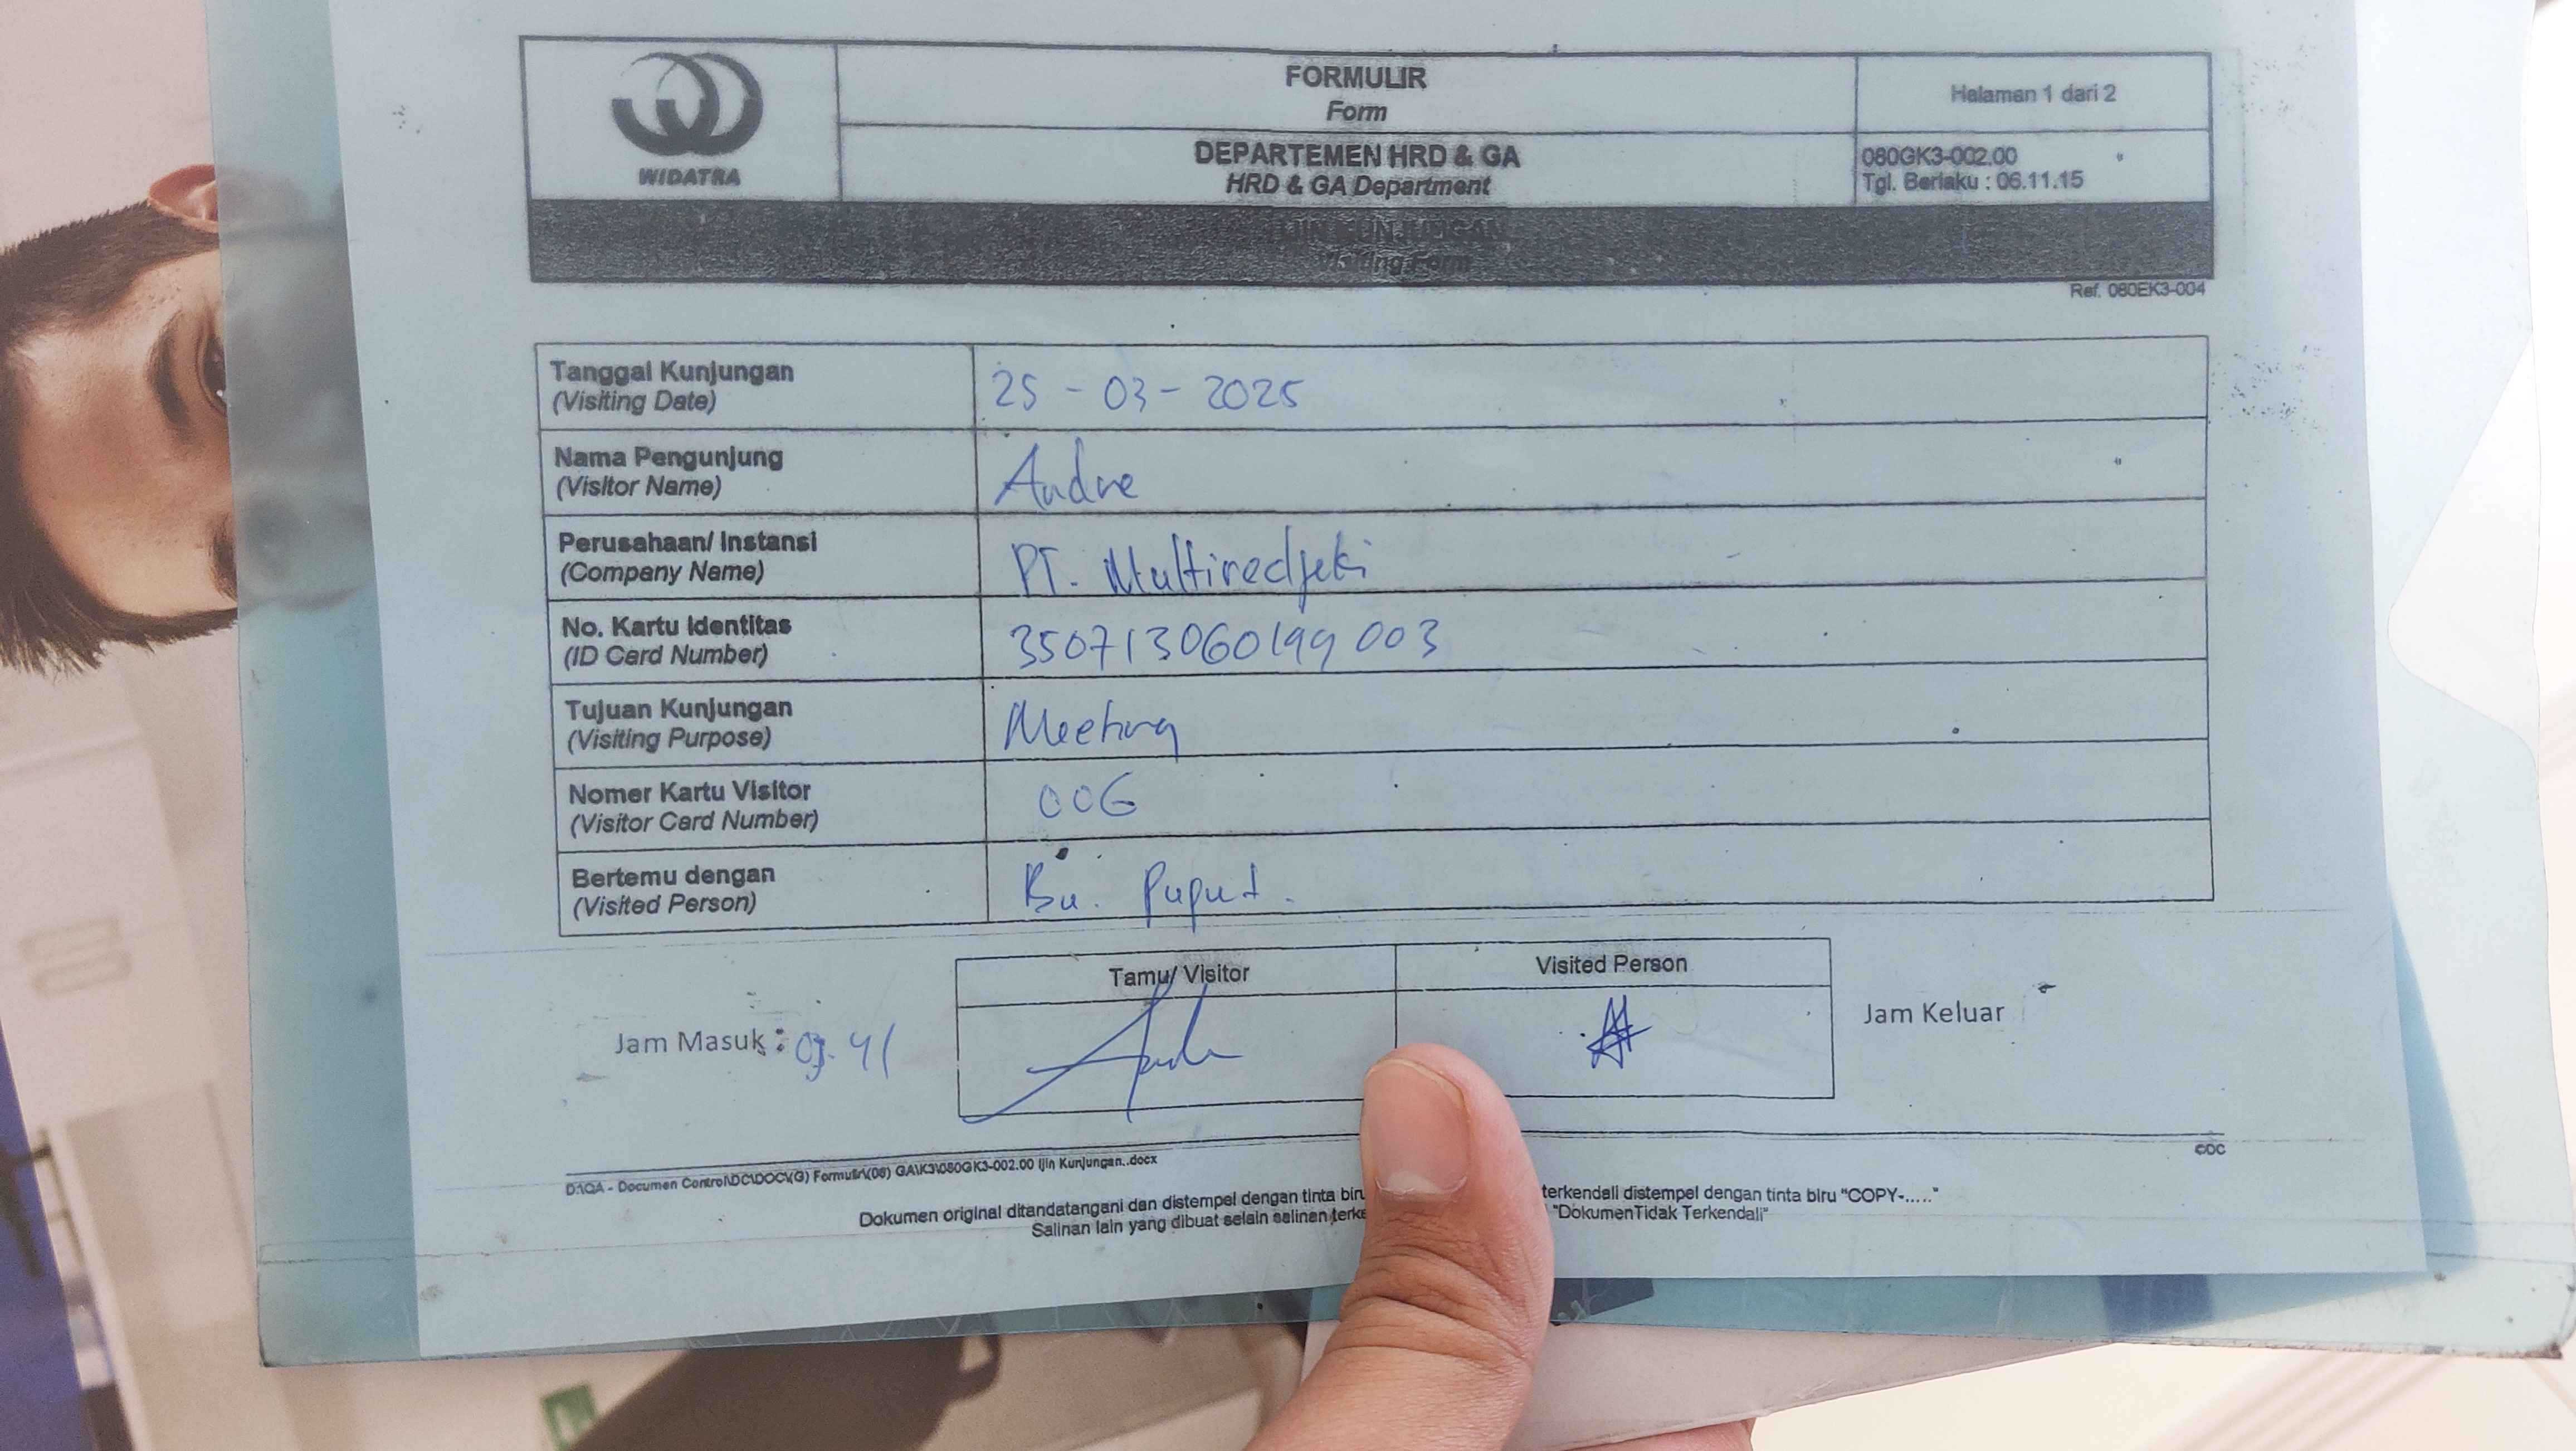 WIDATRA
FORMULIR
Form
Halaman 1 dari 2
DEPARTEMEN HRD & GA
HRD & GA Department
080GK3-002.00
Tgl. Berlaku : 06.11.15
IJIN KUNJUNGAN
Visiting Form
Ref. 080EK3-004
Tanggal Kunjungan
(Visiting Date)
25 - 03 - 2025
Nama Pengunjung
(Visitor Name)
Andre
Perusahaan/ Instansi
(Company Name)
PT. Multiredjeki
No. Kartu Identitas
(ID Card Number)
350713060199003
Tujuan Kunjungan
(Visiting Purpose)
Meeting
Nomer Kartu Visitor
(Visitor Card Number)
006
Bertemu dengan
(Visited Person)
Bu. Puput.
Tamu/ Visitor
Visited Person
Jam Masuk :
Jam Keluar
©DC
D:\QA - Documen Control\DC\DOC\(G) Formulir\(08) GA\K3\080GK3-002.00 Ijin Kunjungan..docx
Dokumen original ditandatangani dan distempel dengan tinta biru terkendali distempel dengan tinta biru "COPY-....."
Salinan lain yang dibuat selain salinan "DokumenTidak Terkendali"